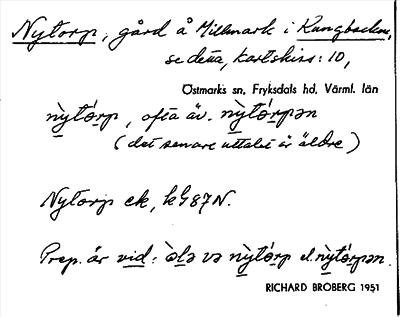 Nytorp, gård å Millmark i Kungbacken,
se detta, kartskiss: 10,
Östmarks sn, Fryksdals hd, Värml. län
nỳtó̱rp, ofta äv. nỳtó̱rpən
(det senare uttalet är äldre)
Nytorp ek, 87N.
Prep. är vid: və nỳtó̱rp el. nỳtó̱rpən.
RICHARD BROBERG 1951